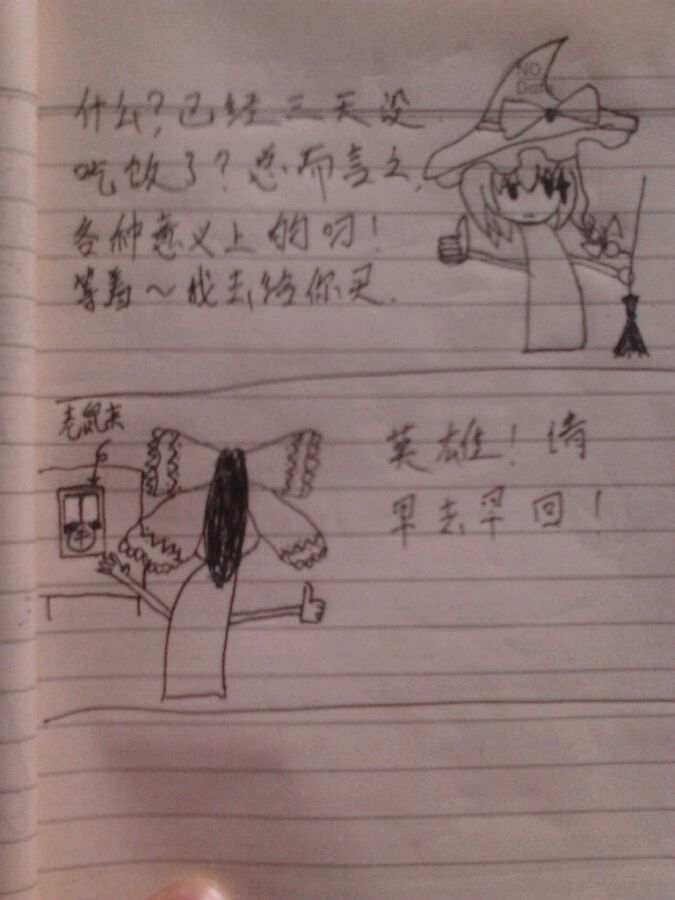 什么？已经三天没
NO.
Date
吃饭了？总而言之，
各种意义上的叼！
等着～我去给你买.
老鼠夹
英雄！请
早去早回！